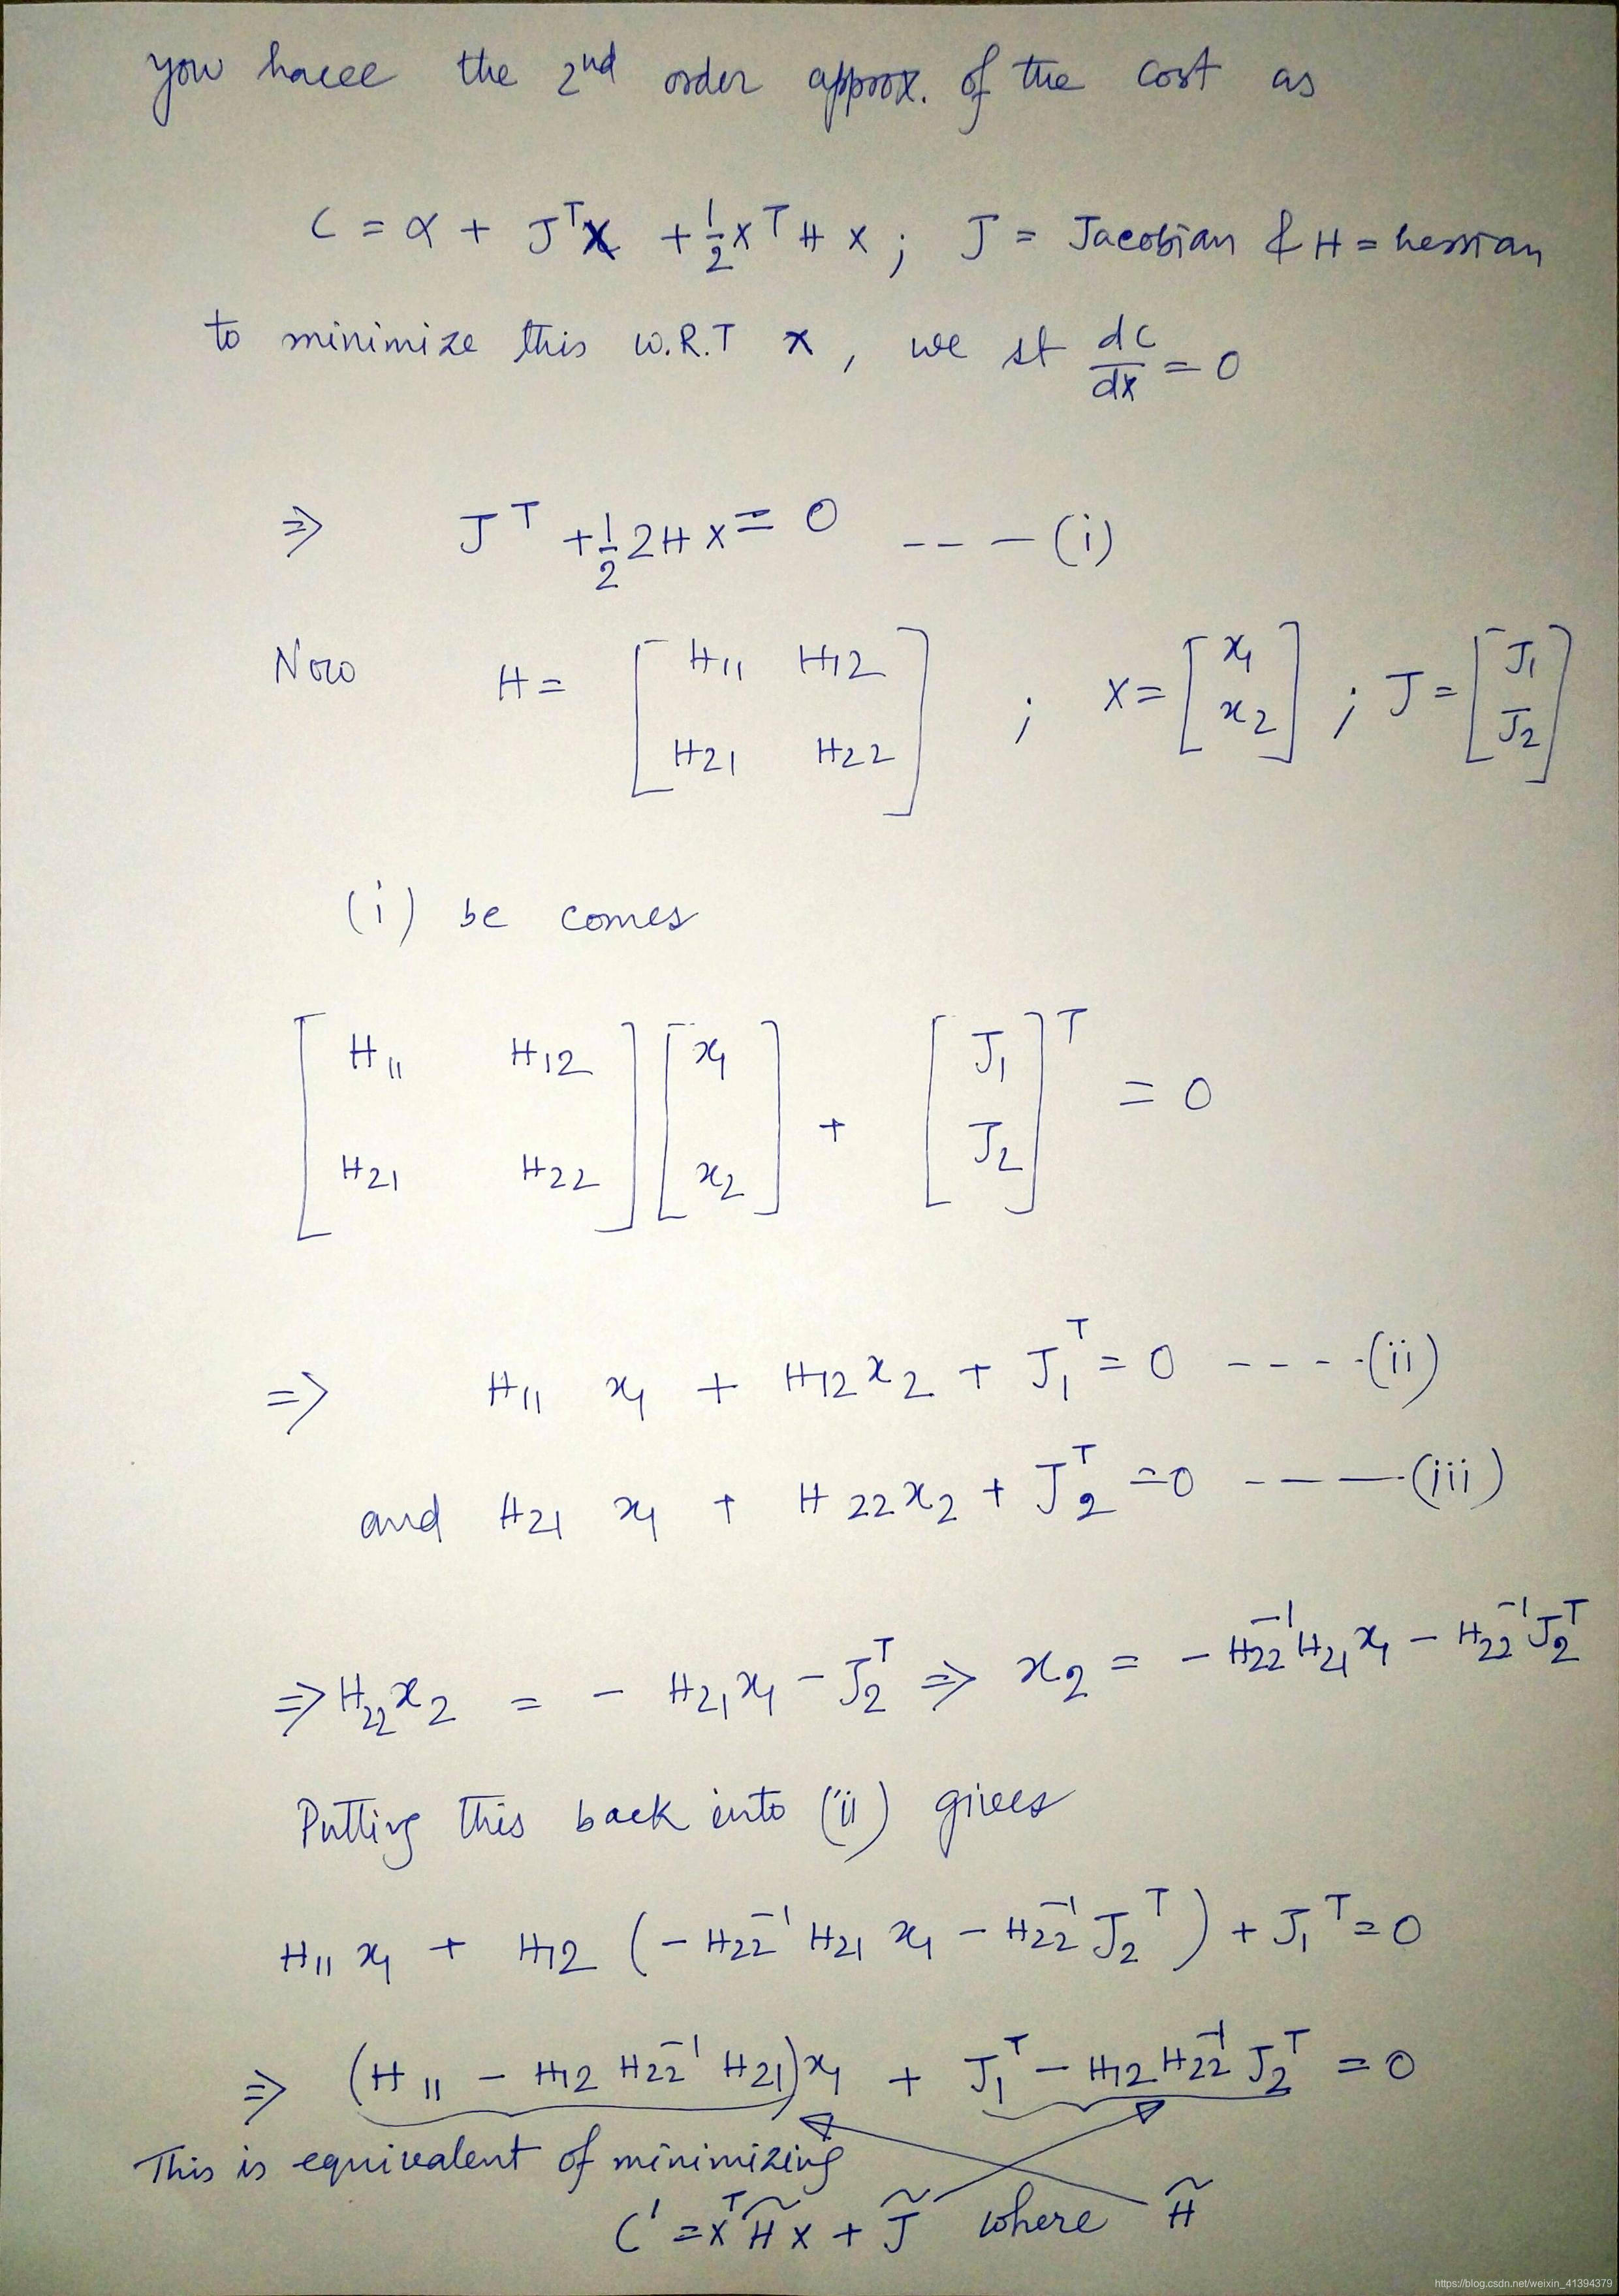 you have the 2nd order approx. of the cost as
C = α + Jᵀx + ½xᵀHx ; J = Jacobian & H = hessian
to minimize this w.R.T x, we st dc/dx = 0
⇒ Jᵀ + ½2Hx = 0 --- (i)
Now H = [H11 H12; H21 H22] ; x = [x1; x2] ; J = [J1; J2]
(i) be comes
[H11 H12; H21 H22] [x1; x2] + [J1; J2]ᵀ = 0
⇒ H11 x1 + H12 x2 + J1ᵀ = 0 ---- (ii)
and H21 x1 + H22 x2 + J2ᵀ = 0 --- (iii)
⇒ H22 x2 = - H21 x1 - J2ᵀ ⇒ x2 = - H22⁻¹ H21 x1 - H22⁻¹ J2ᵀ
Putting this back into (ii) gives
H11 x1 + H12 (- H22⁻¹ H21 x1 - H22⁻¹ J2ᵀ) + J1ᵀ = 0
⇒ (H11 - H12 H22⁻¹ H21) x1 + J1ᵀ - H12 H22⁻¹ J2ᵀ = 0
This is equivalent of minimizing
C' = xᵀ H̃ x + J̃ where H̃
https://blog.csdn.net/weixin_41394379